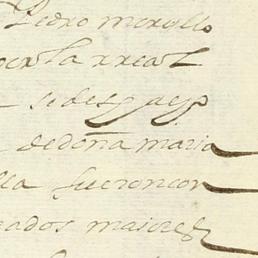 Pedro morillo
por la rreal
se despacho
de doña maria
lla fueron con
gados maiores